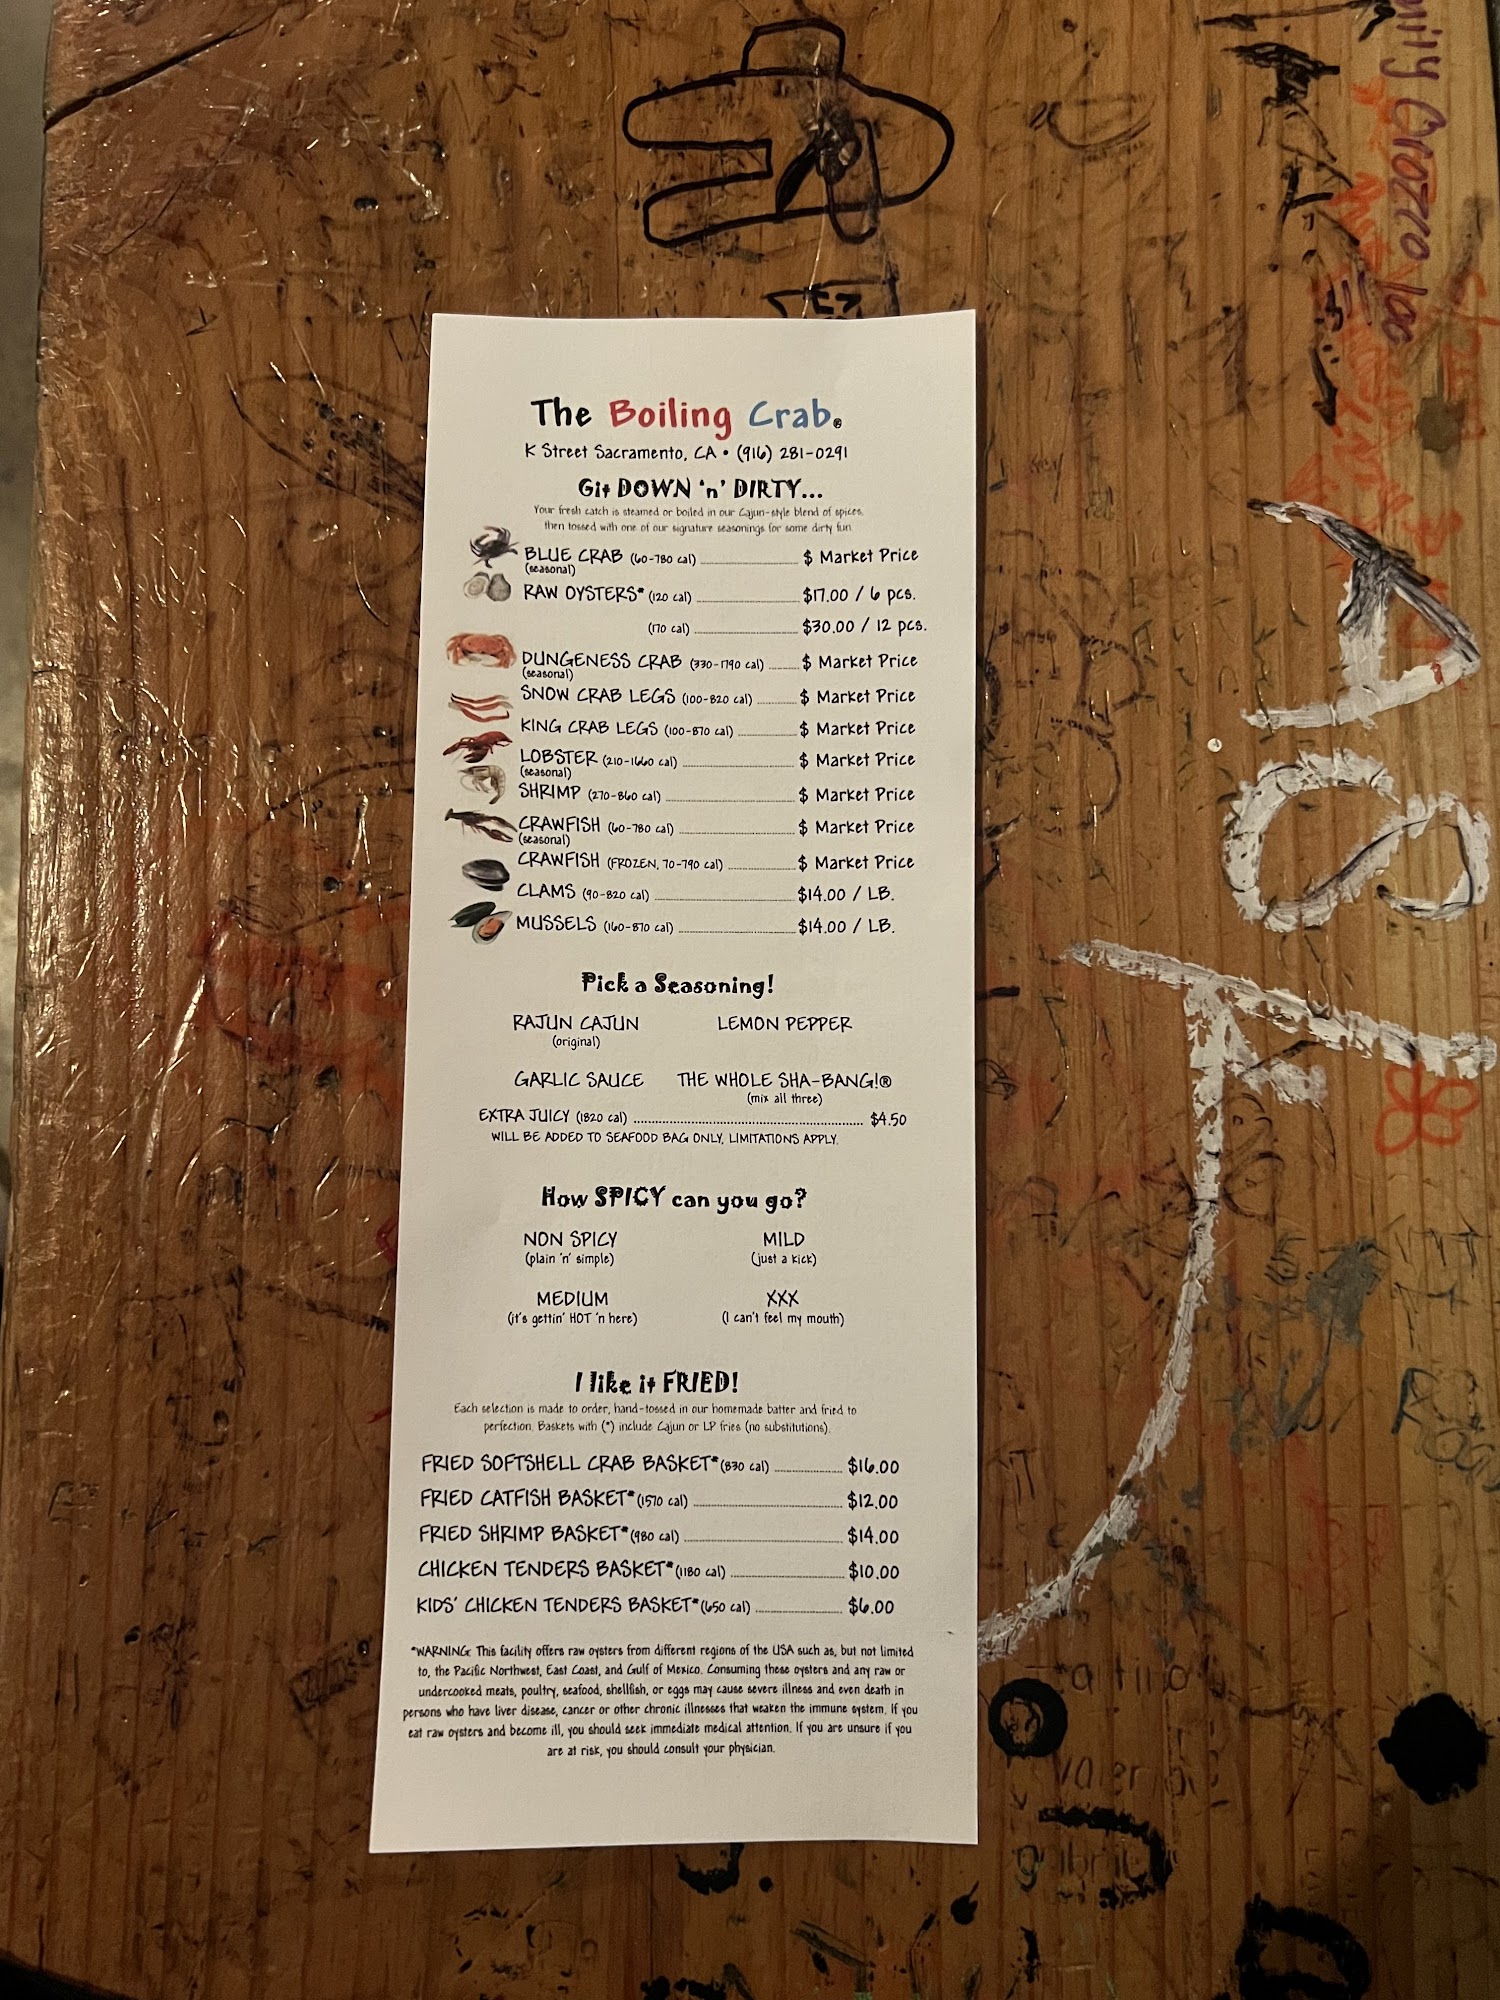 The Boiling Crab®
K Street Sacramento, CA • (916) 281-0291
Git DOWN 'n' DIRTY...
Your fresh catch is steamed or boiled in our Cajun-style blend of spices,
then tossed with one of our signature seasonings for some dirty fun.
BLUE CRAB (60-780 cal) $ Market Price
(seasonal)
RAW OYSTERS* (120 cal) $17.00 / 6 pcs.
(170 cal) $30.00 / 12 pcs.
DUNGENESS CRAB (330-1790 cal) $ Market Price
(seasonal)
SNOW CRAB LEGS (100-820 cal) $ Market Price
KING CRAB LEGS (100-870 cal) $ Market Price
LOBSTER (210-1660 cal) $ Market Price
(seasonal)
SHRIMP (270-860 cal) $ Market Price
CRAWFISH (60-780 cal) $ Market Price
(seasonal)
CRAWFISH (FROZEN, 70-790 cal) $ Market Price
CLAMS (90-820 cal) $14.00 / LB.
MUSSELS (160-870 cal) $14.00 / LB.
Pick a Seasoning!
RAJUN CAJUN LEMON PEPPER
(original)
GARLIC SAUCE THE WHOLE SHA-BANG!®
(mix all three)
EXTRA JUICY (1820 cal) $4.50
WILL BE ADDED TO SEAFOOD BAG ONLY, LIMITATIONS APPLY.
How SPICY can you go?
NON SPICY MILD
(plain 'n' simple) (just a kick)
MEDIUM XXX
(it's gettin' HOT 'n here) (I can't feel my mouth)
I like it FRIED!
Each selection is made to order, hand-tossed in our homemade batter and fried to
perfection. Baskets with (*) include Cajun or LP fries (no substitutions).
FRIED SOFTSHELL CRAB BASKET* (830 cal) $16.00
FRIED CATFISH BASKET* (1570 cal) $12.00
FRIED SHRIMP BASKET* (980 cal) $14.00
CHICKEN TENDERS BASKET* (1180 cal) $10.00
KIDS' CHICKEN TENDERS BASKET* (650 cal) $6.00
*WARNING: This facility offers raw oysters from different regions of the USA such as, but not limited
to, the Pacific Northwest, East Coast, and Gulf of Mexico. Consuming these oysters and any raw or
undercooked meats, poultry, seafood, shellfish, or eggs may cause severe illness and even death in
persons who have liver disease, cancer or other chronic illnesses that weaken the immune system. If you
eat raw oysters and become ill, you should seek immediate medical attention. If you are unsure if you
are at risk, you should consult your physician.